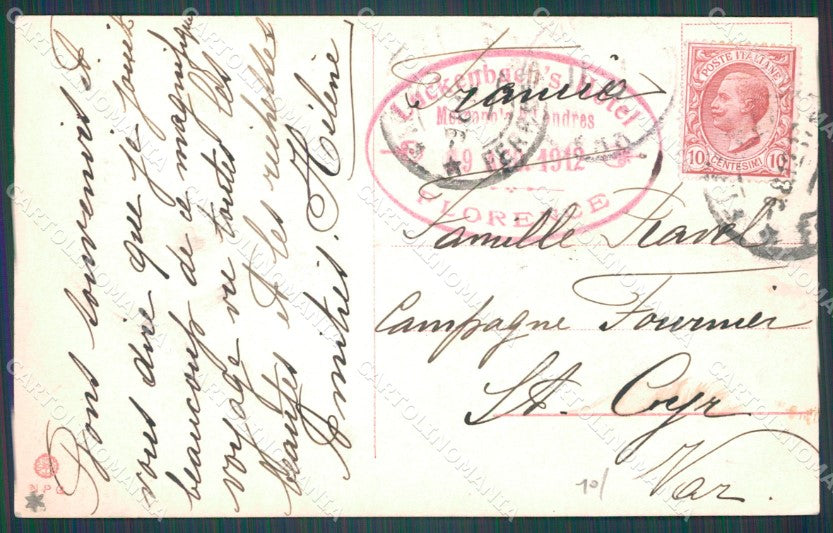 Bons souvenirs et
vous dire que je jouit
beaucoup de ce magnifique
voyage vu toutes les
beautés et les richesses
Amitiés. Hélène
Luckenbach's Hotel
Londres
9 1912
FLORENCE
FERR
POSTE ITALIANE
10 CENTESIMI 10
Famille Ravel
Campagne Fournier
St. Cyr
Var.
10/
NPG
CARTOLINOMANIA